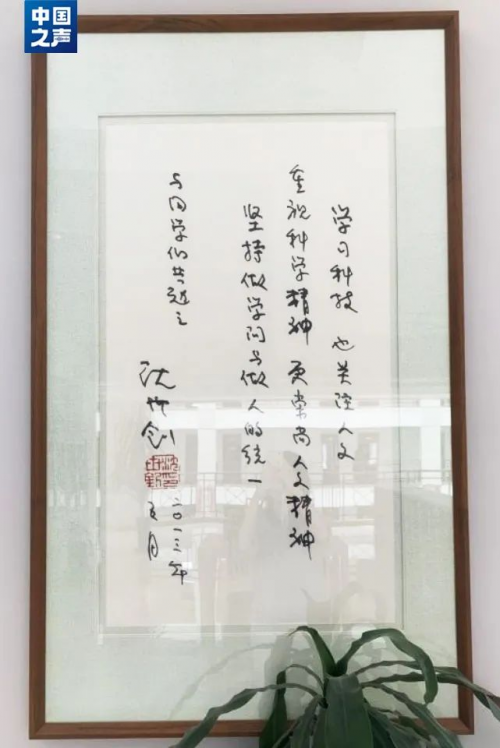 中国
之声
学习科技 也关注人文
重视科学精神 更崇尚人文精神
坚持做学问与做人的统一
与同学们共勉之
沈世钊
二〇一三年
五月